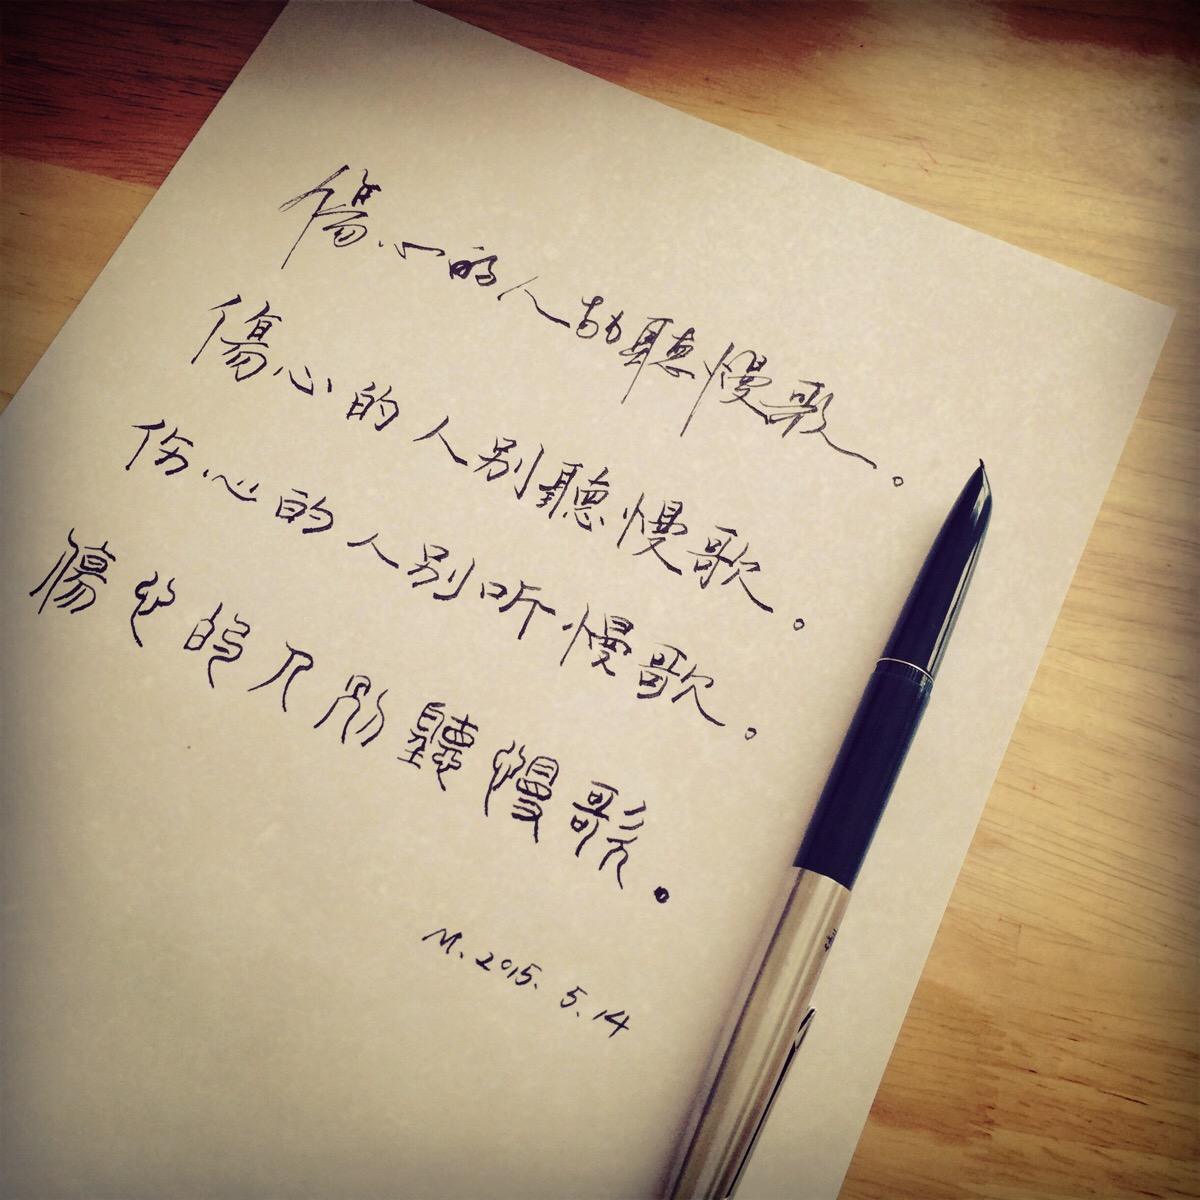 傷心的人勿聽慢歌。
傷心的人别聽慢歌。
伤心的人别听慢歌。
傷心的人別聽慢歌。
M. 2015. 5. 14